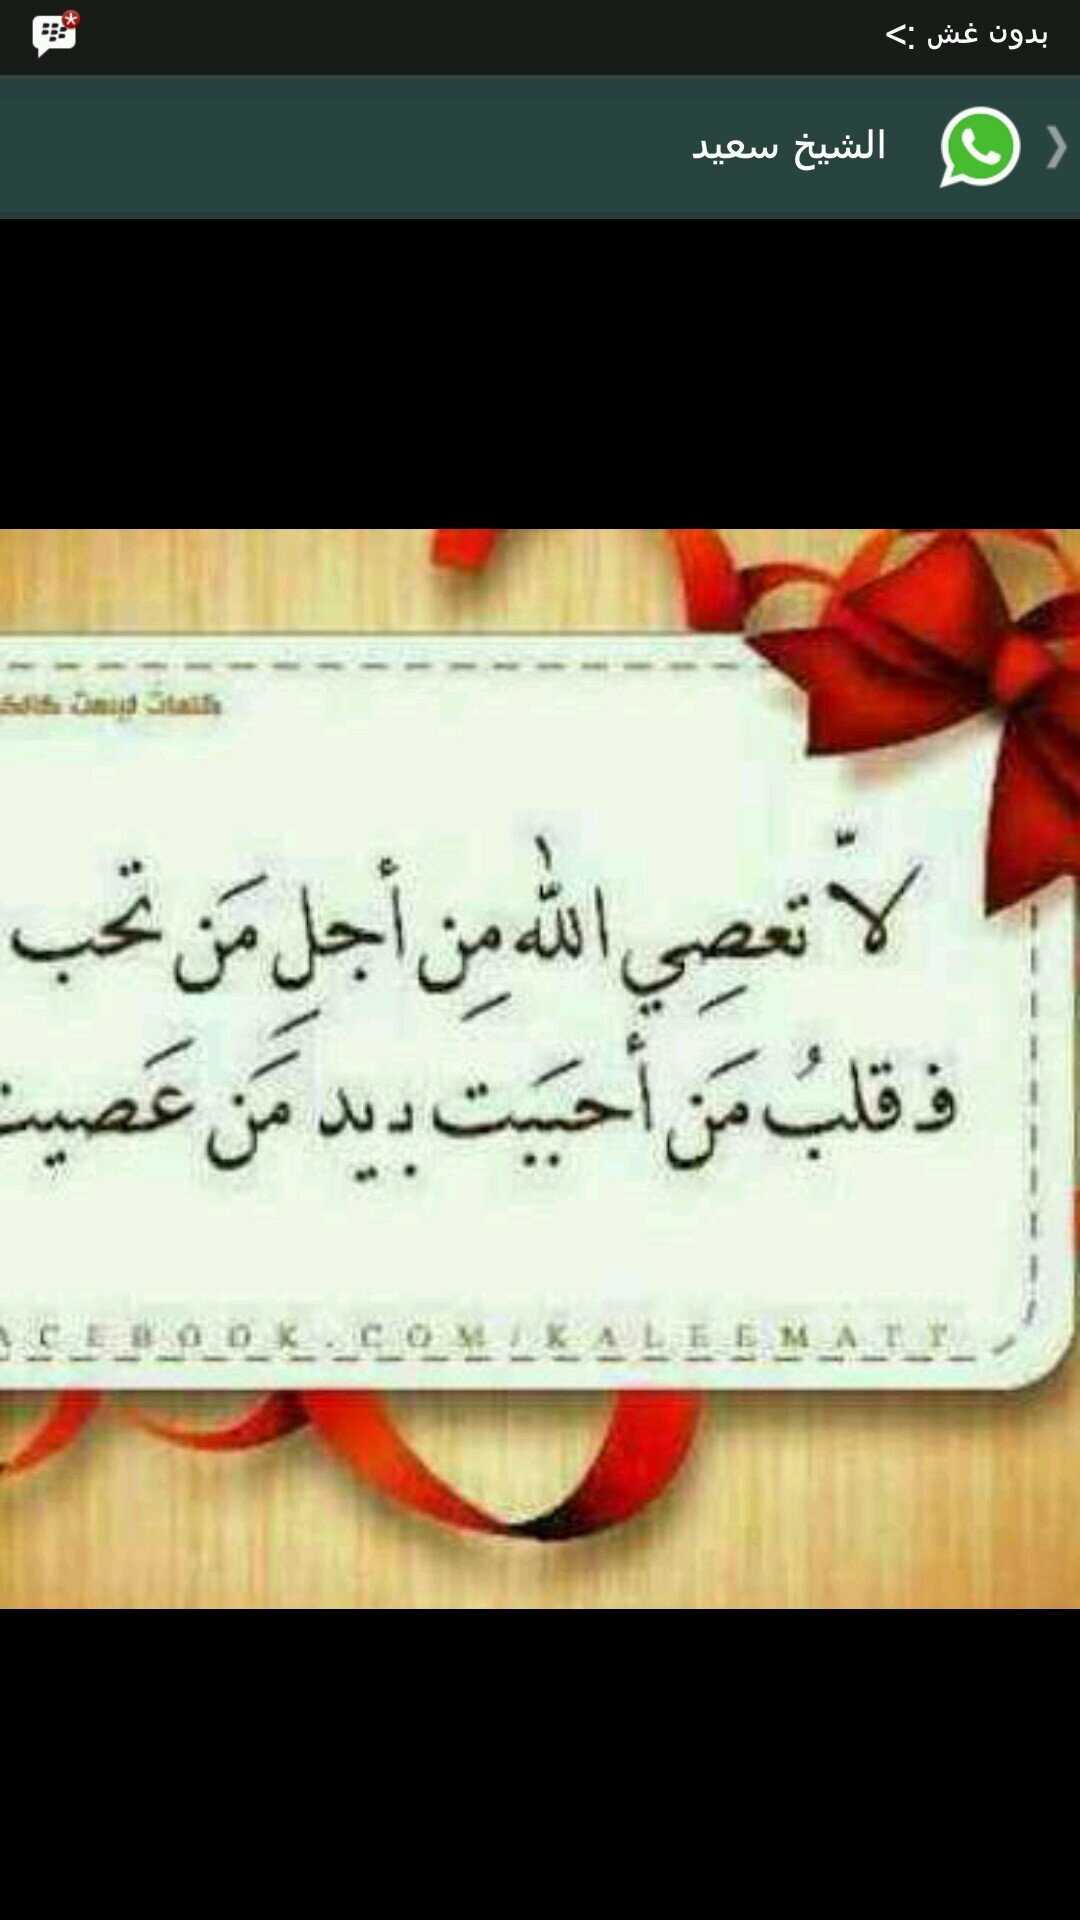 بدون غش :>
الشيخ سعيد
كلمات ليست
لاّ تعصِي الله مِن أجلِ مَن تحب
فـ قلبُ مَن أحبَبت بـيد مَن عَصيت
ACEBOOK.COM/KALEEMATT